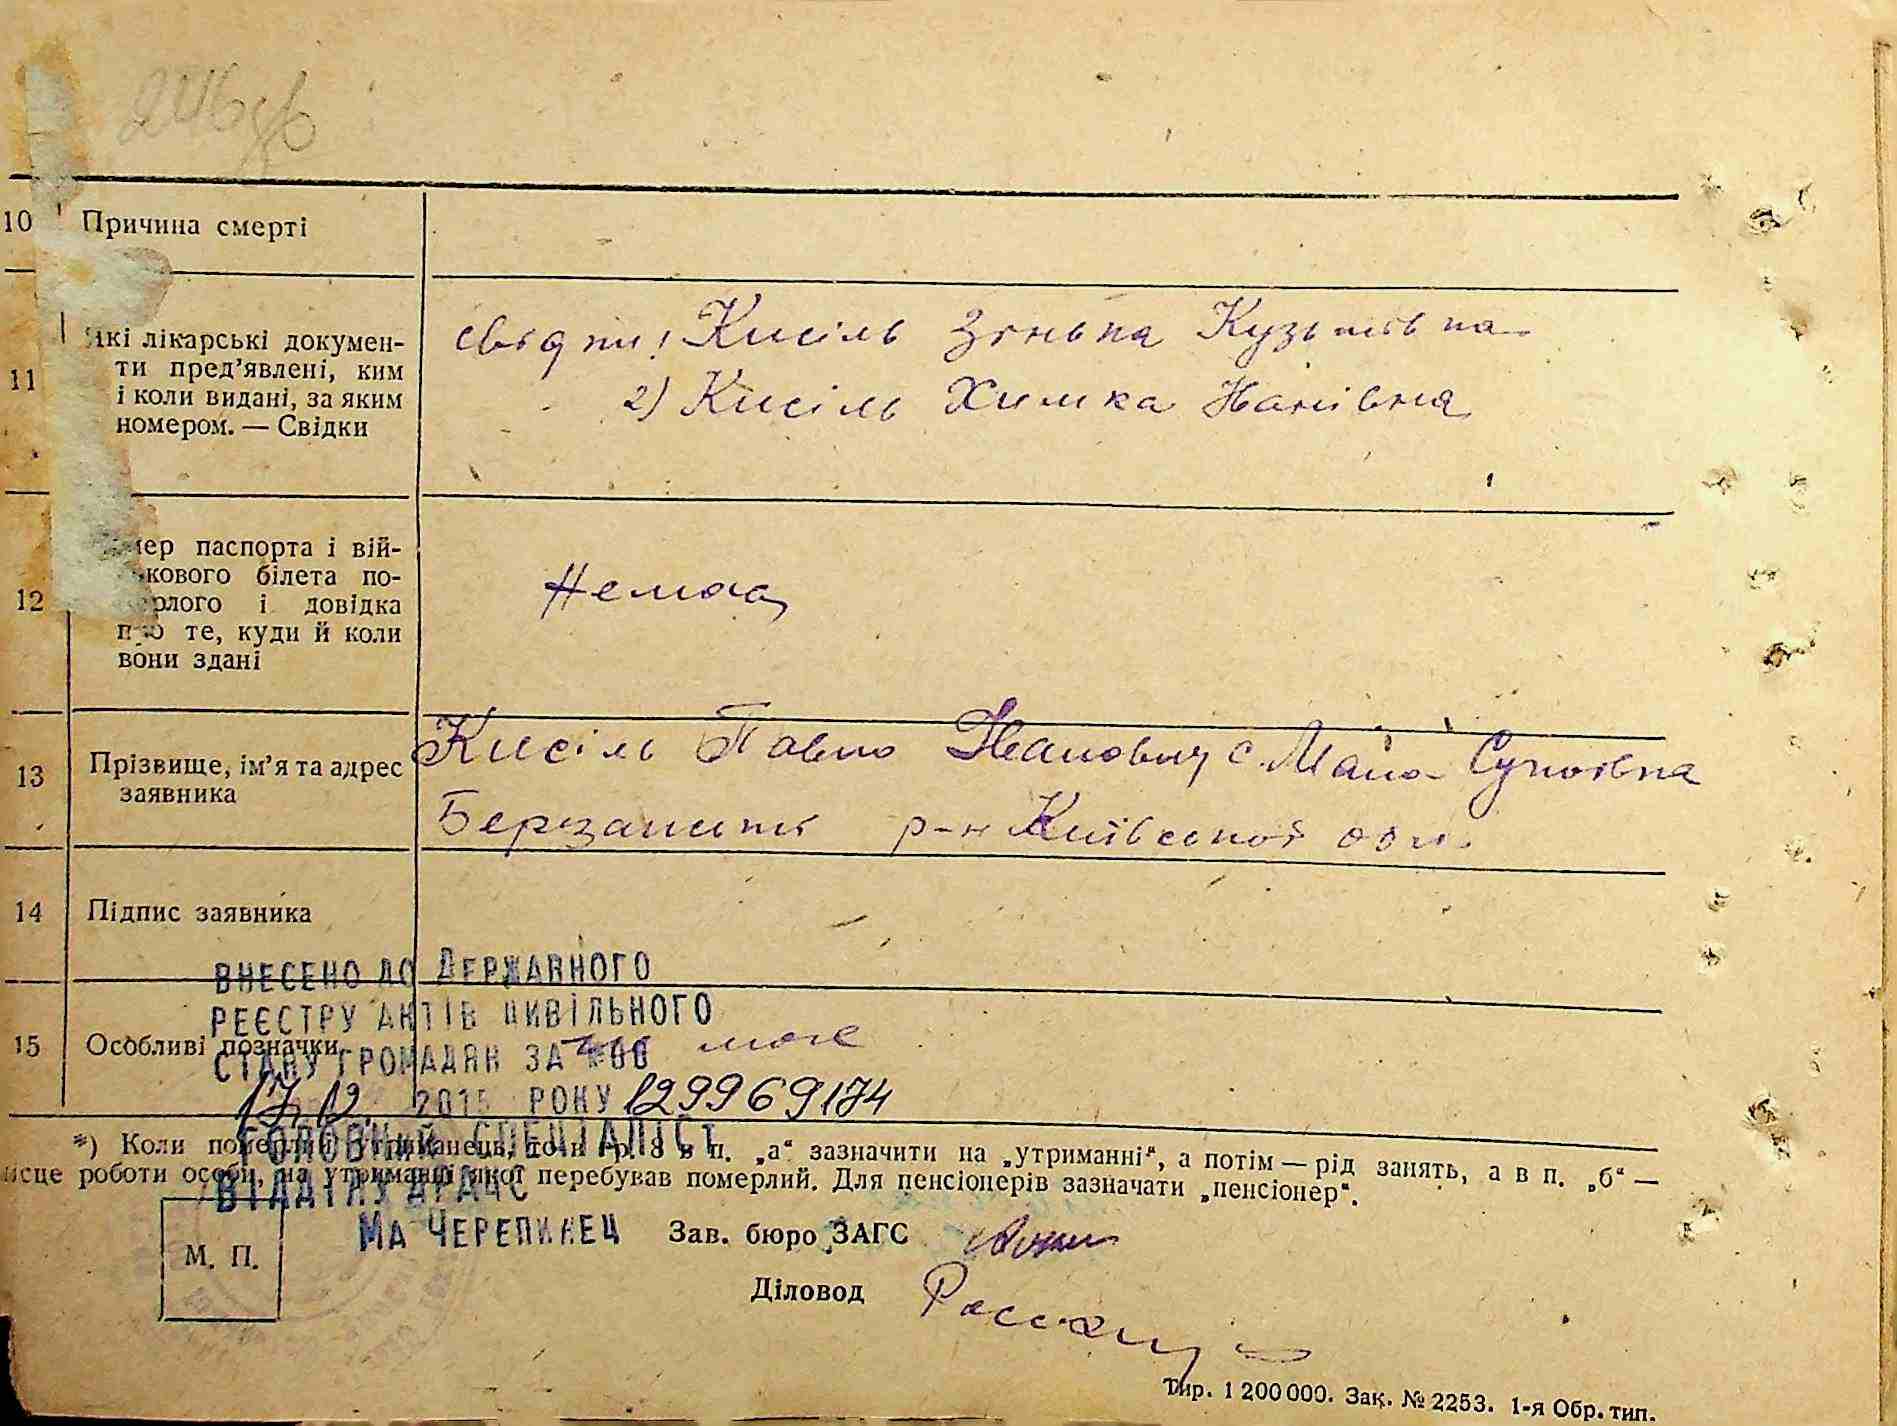 10 Причина смерті
11 які лікарські докумен-
ти пред’явлені, ким
і коли видані, за яким
номером. — Свідки
свідки! Кисіль Зінька Кузьмівна
2) Кисіль Химка Іванівна
12 мер паспорта і вій-
кового білета по-
рлого і довідка
про те, куди й коли
вони здані
Немає
13 Прізвище, ім’я та адрес
заявника
Кисіль Павло Іванович с. Мало-Супоївка
Березанськ р-н Київської обл.
14 Підпис заявника
15 Особливі позначки
ВНЕСЕНО ДО ДЕРЖАВНОГО
РЕЄСТРУ АКТІВ ЦИВІЛЬНОГО
СТАНУ ГРОМАДЯН ЗА №
17.12. 2015 РОКУ 129969174
ГОЛОВНИЙ СПЕЦІАЛІСТ
ВІДДІЛУ ДРАЦС
МА ЧЕРЕПИНЕЦ
*) Коли померлий утриманець, то в гр. 8 в п. „а“ зазначити на „утриманні“, а потім — рід занять, а в п. „б“ —
місце роботи особи, на утриманні якої перебував померлий. Для пенсіонерів зазначати „пенсіонер“.
М. П.
Зав. бюро ЗАГС
Діловод
Тир. 1 200 000. Зак. № 2253. 1-я Обр. тип.